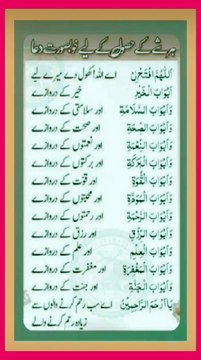 ہر شے کے حصول کے لیے خوبصورت دعا
اَللّٰهُمَّ افْتَحْ لِيْ اے اللہ کھول دے میرے لیے
اَبْوَابَ الْخَيْرِ خیر کے دروازے
وَاَبْوَابَ السَّلَامَةِ اور سلامتی کے دروازے
وَاَبْوَابَ الصِّحَّةِ اور صحت کے دروازے
وَاَبْوَابَ النِّعْمَةِ اور نعمتوں کے دروازے
وَاَبْوَابَ الْبَرَكَةِ اور برکتوں کے دروازے
وَاَبْوَابَ الْقُوَّةِ اور قوت کے دروازے
وَاَبْوَابَ الْمَوَدَّةِ اور محبتوں کے دروازے
وَاَبْوَابَ الرَّحْمَةِ اور رحمتوں کے دروازے
وَاَبْوَابَ الرِّزْقِ اور رزق کے دروازے
وَاَبْوَابَ الْعِلْمِ اور علم کے دروازے
وَاَبْوَابَ الْمَغْفِرَةِ اور مغفرت کے دروازے
وَاَبْوَابَ الْجَنَّةِ اور جنت کے دروازے
يَا اَرْحَمَ الرَّاحِمِيْنَ اے سب رحم کرنے والوں سے
زیادہ رحم کرنے والے